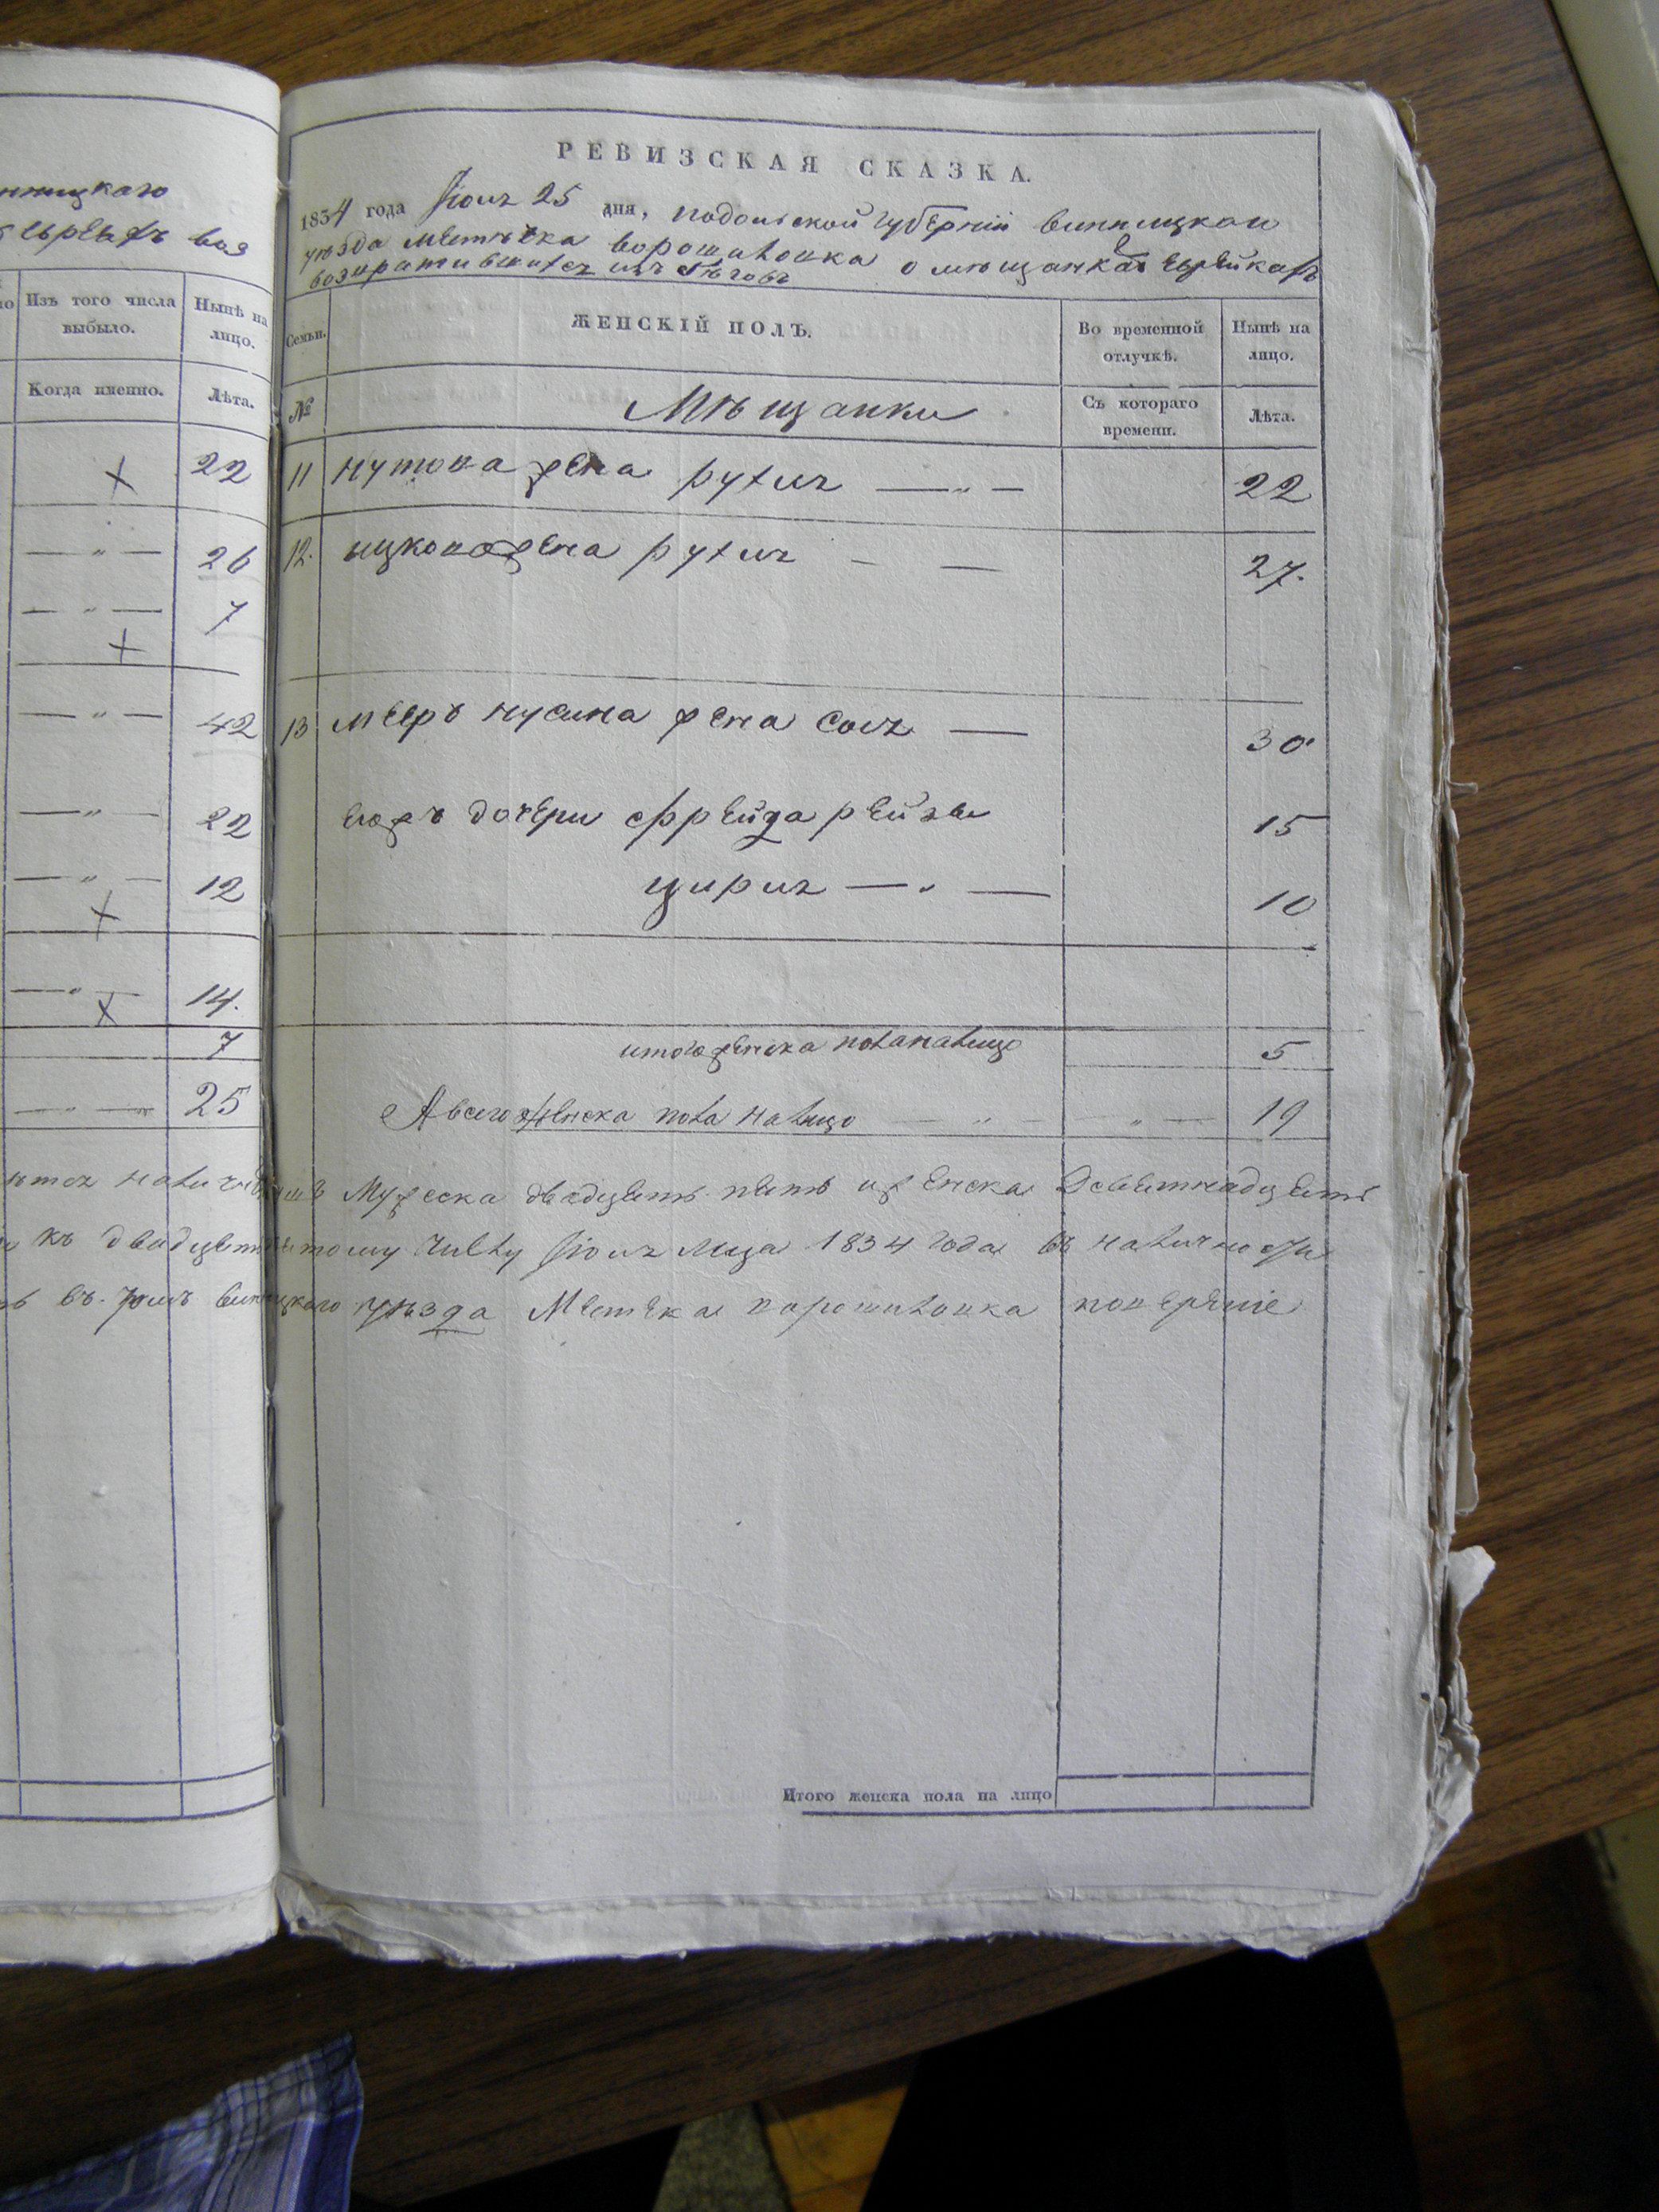 нницкаго
еврєяхъ воз
Изъ того числа выбыло.
Нынѣ на лицо.
Когда именно.
Лѣта.
22
— „ — 26
— „ — 7
— „ — 42
— „ — 22
— „ — 12
— „ — 14.
7
— „ — 25
РЕВИЗСКАЯ СКАЗКА.
1834 года Іюля 25 дня, подольской губерніи винницкаго
уѣзда местечка ворошиловка о мѣщанкахъ еврейкахъ
возвратившихся изъ бѣговъ
Семьи.
ЖЕНСКІЙ ПОЛЪ.
Во временной отлучкѣ.
Нынѣ на лицо.
№
Мѣщанки
Съ котораго времени.
Лѣта.
11 нутова жена рухля — „ — 22
12. ицкова жена рухля — — 27.
13 мееръ нусина жена соля — 30
его жъ дочери фрейда рейзя 15
циря — „ — 10
итого женска пола налицо 5
А всего женска пола налицо — „ — „ — 19
Мужеска двадцеть пять и женска девятнадцеть
къ двадцетьпятому числу Іюля Мца 1834 года въ наличности
въ томъ винницкаго уѣзда Местечка ворошиловка
Итого женска пола на лицо